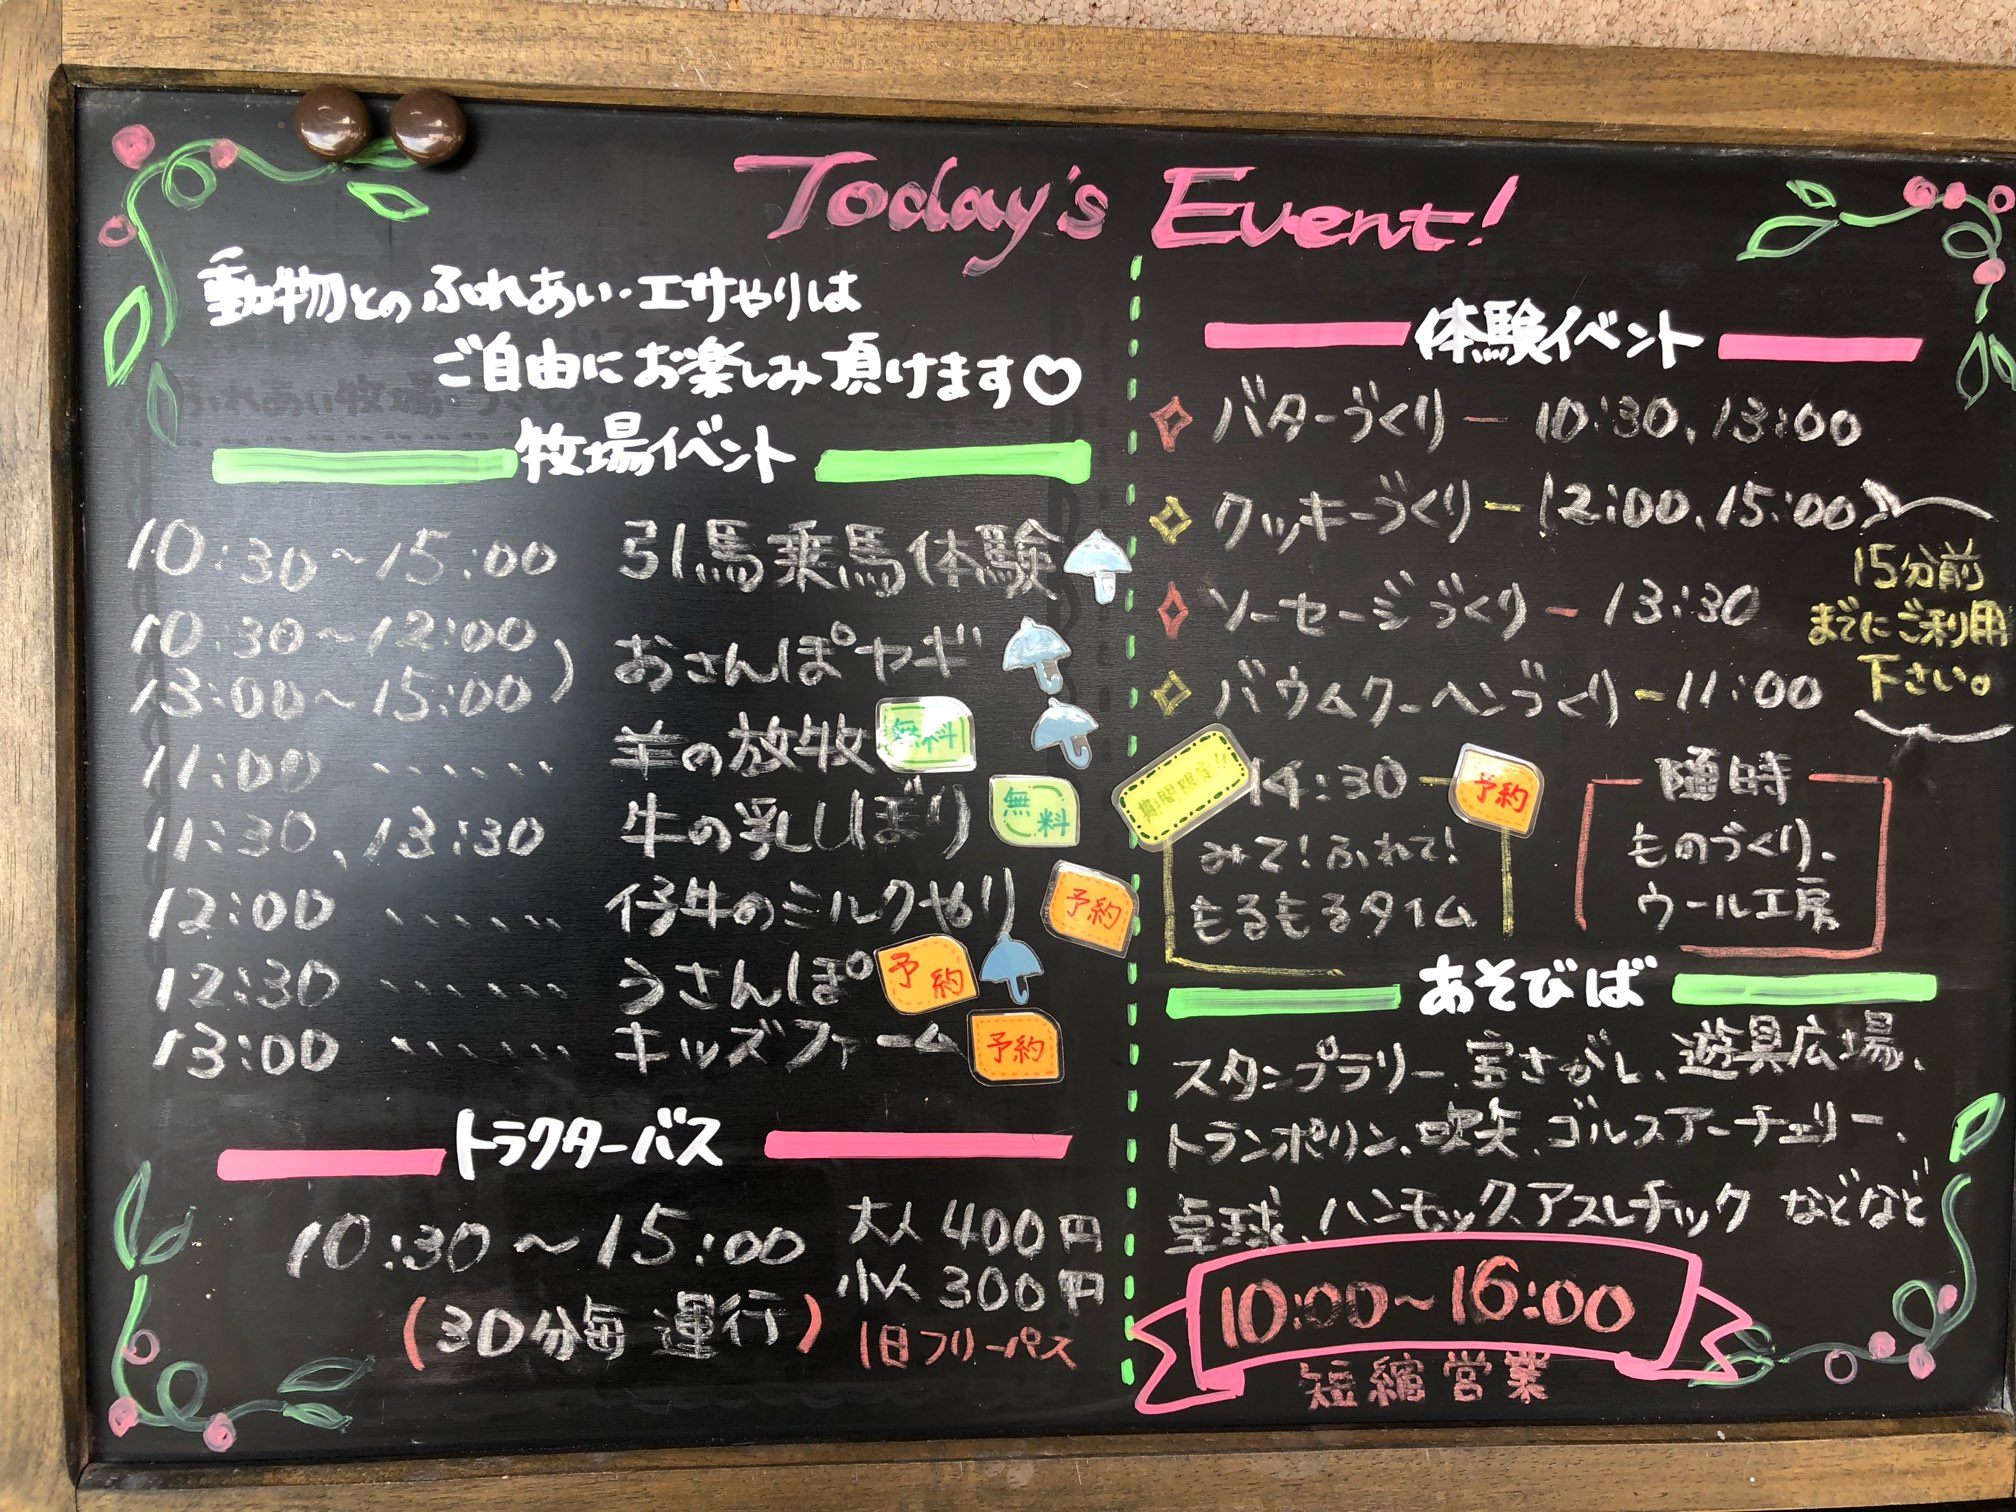 Today's Event!
動物とのふれあい・エサやりは
ご自由にお楽しみ頂けます♡
牧場イベント
10:30～15:00 引馬乗馬体験
10:30～12:00
13:00～15:00) おさんぽヤギ
11:00 ...... 羊の放牧 無料
11:30、13:30 牛の乳しぼり 無料
12:00 ...... 仔牛のミルクやり 予約
12:30 ...... うさんぽ 予約
13:00 ...... キッズファーム 予約
トラクターバス
10:30～15:00
(30分毎 運行)
大人 400円
小人 300円
1日フリーパス
体験イベント
バターづくり － 10:30、13:00
クッキーづくり － 12:00、15:00
ソーセージづくり － 13:30
バウムクーヘンづくり － 11:00
15分前
までにご利用
下さい。
期間限定!!
14:30 － 予約
みて！ふれて！
もるもるタイム
随時
ものづくり、
ウール工房
あそびば
スタンプラリー、宝さがし、遊具広場、
トランポリン、吹矢、ゴルスアーチェリー、
卓球、ハンモック、アスレチック などなど
10:00～16:00
短縮営業